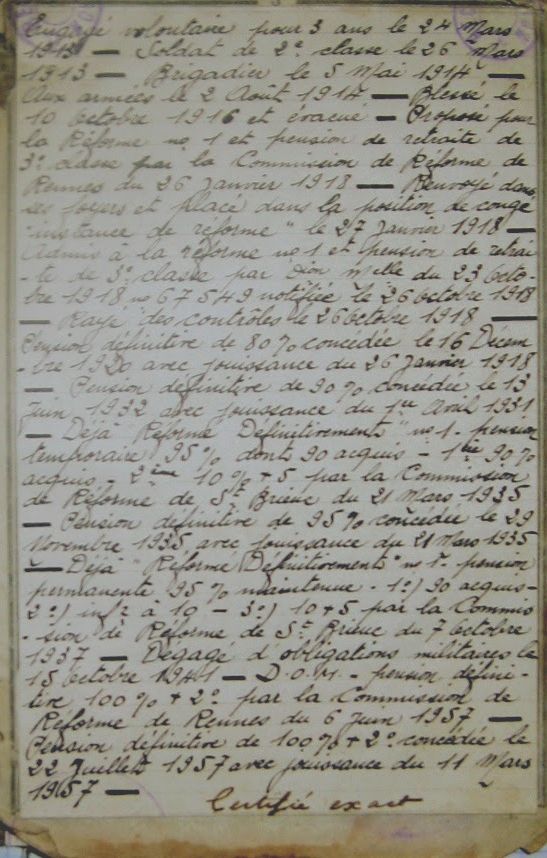 Engagé volontaire pour 3 ans le 24 Mars
1913 — Soldat de 2e classe le 26 Mars
1913 — Brigadier le 5 Mai 1914 —
Aux armées le 2 Août 1914 — Blessé le
10 Octobre 1916 et évacué — Proposé pour
la Réforme no 1 et pension de retraite de
3e classe par la Commission de Réforme de
Rennes du 26 Janvier 1918 — Renvoyé dans
ses foyers et placé dans la position de congé
"instance de réforme" le 27 Janvier 1918 —
Admis à la réforme no 1 et pension de retrai
-te de 3e classe par Don Mlle du 23 Octo-
bre 1918 no 67549 notifiée le 26 Octobre 1918
— Rayé des contrôles le 26 Octobre 1918 —
Pension définitive de 80% concédée le 16 Décem
-bre 1920 avec jouissance du 26 Janvier 1918
— Pension définitive de 90% concédée le 13
Juin 1932 avec jouissance du 1er Avril 1931
— Déjà "Réformé Définitivement" no 1 - pension
temporaire 95% dont 90 acquis - 1ère 90%
acquis - 2ème 10% + 5 par la Commission
de Réforme de St Brieuc du 21 Mars 1935
— Pension définitive de 95% concédée le 29
Novembre 1935 avec jouissance du 21 Mars 1935
— Déjà "Réformé Définitivement" no 1 - pension
permanente 95% maintenue - 1°) 90 acquis -
2°) inf à 10 - 3°) 10+5 par la Commis
-sion de Réforme de St Brieuc du 7 Octobre
1937 — Dégagé d'obligations militaires le
15 Octobre 1941 — D.O.M. - pension défini-
tive 100% + 2° par la Commission de
Réforme de Rennes du 6 Juin 1957 —
Pension définitive de 100% + 2° concédée le
22 Juillet 1957 avec jouissance du 11 Mars
1957 —
Certifié exact